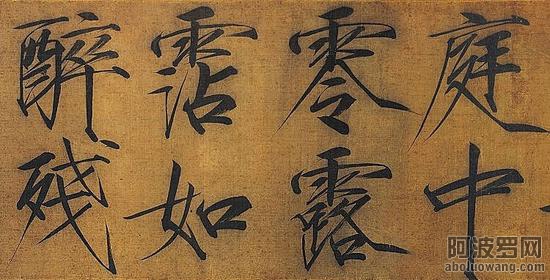 庭中
零露
霑如
醉殘
阿波罗网
aboluowang.com